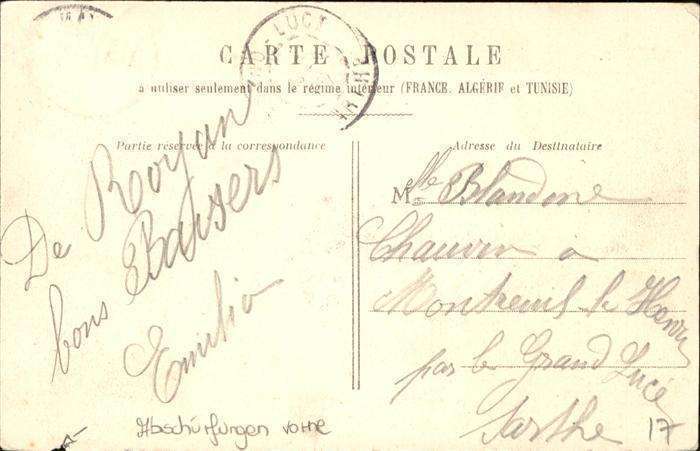 CARTE POSTALE
à utiliser seulement dans le régime intérieur (FRANCE, ALGÉRIE et TUNISIE)
Partie réservée à la correspondance
Adresse du Destinataire
De Royan
bons Baisers
Emilie
Mlle Blandine
Chauvin a
Montreuil le Henry
par le Grand Lucé
Sarthe
17
Abschürfungen vorne
LUCÉ